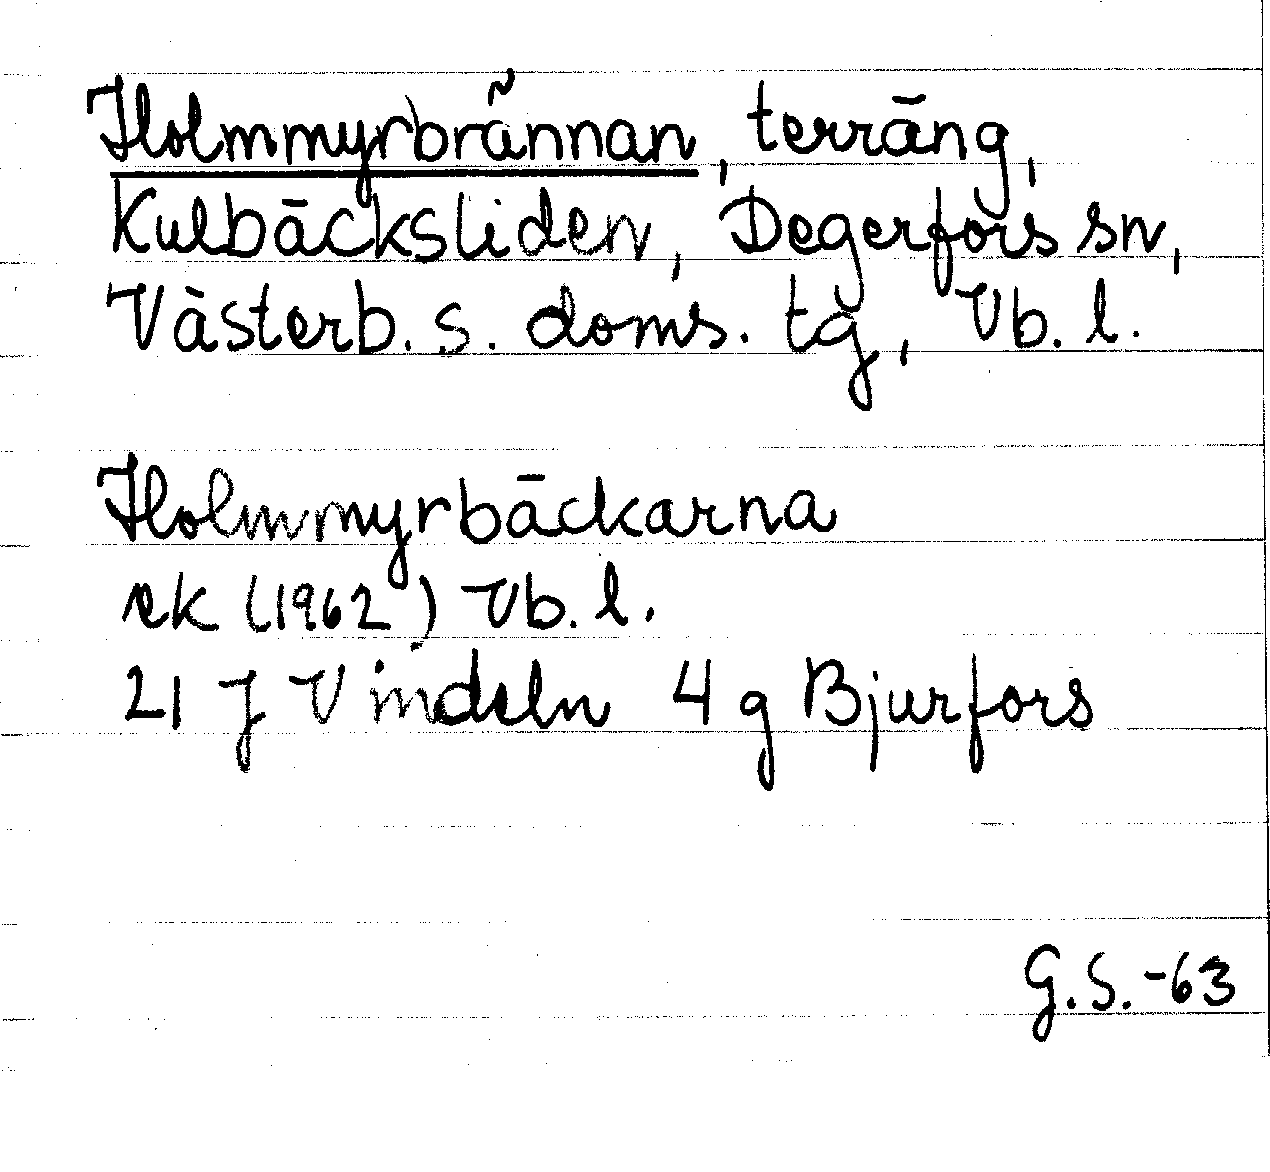 Holmmyrbrännan, terräng,
Kulbäcksliden, Degerfors sn,
Västerb. s. doms. tg, Vb. l.
Holmmyrbäckarna
ek (1962) Vb. l.
21 J Vindeln 4 g Bjurfors
G.S. -63